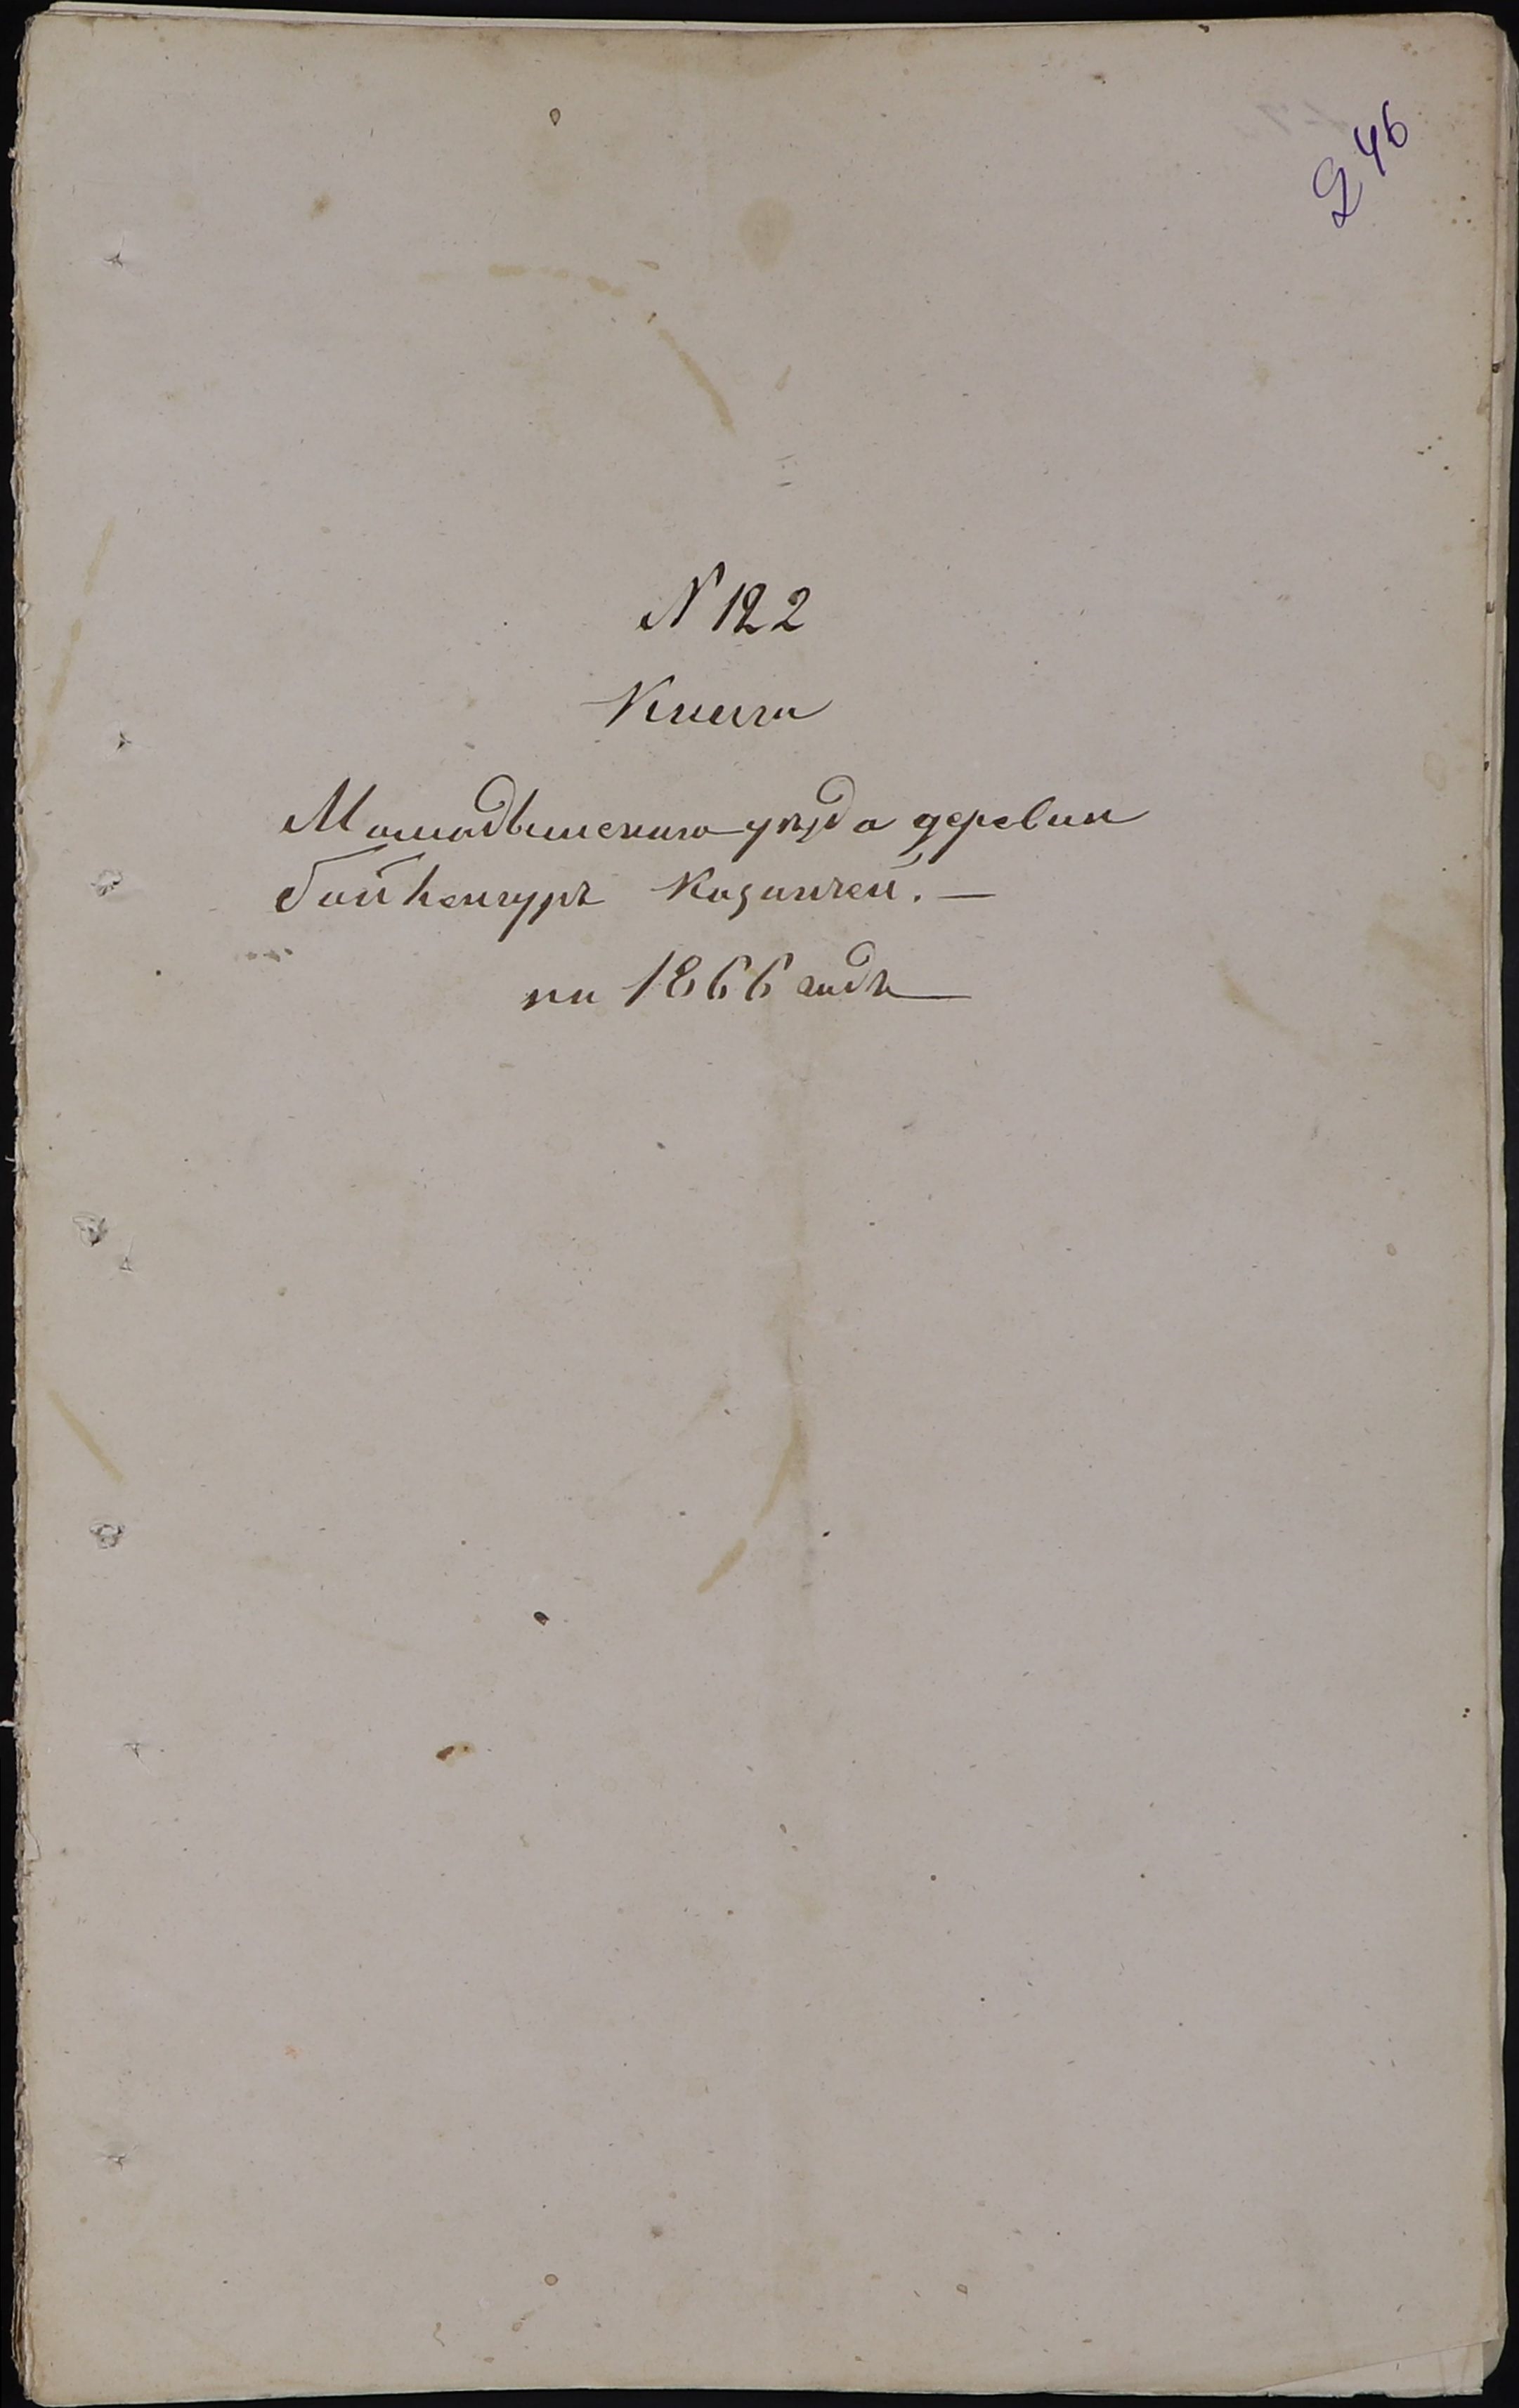 246
N 122
Книга
Мамадышскаго уѣзда деревни
Байкенгуръ Казаклей. —
на 1866 годъ